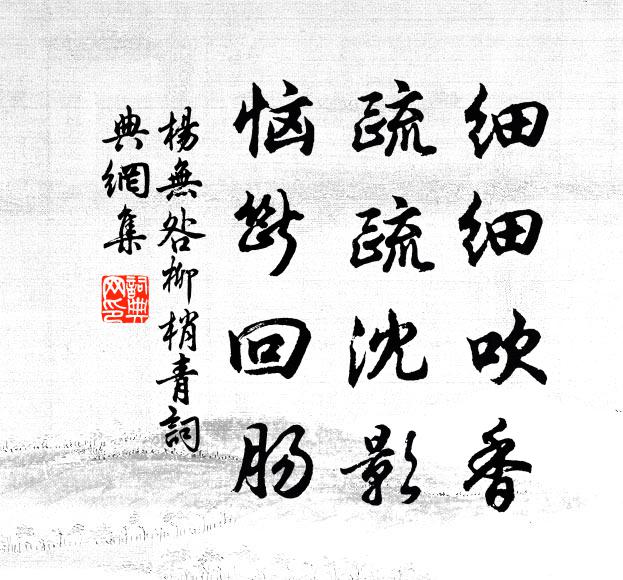 细细吹香
疏疏沈影
恼断回肠
楊無咎柳梢青詞
典網集
詞典
网印